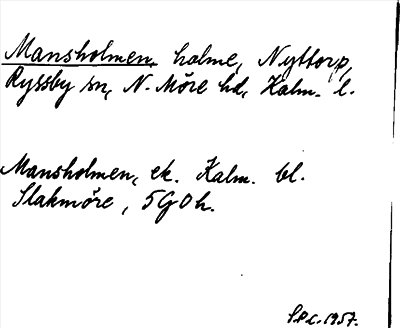 Mansholmen, holme, Nyttorp,
Ryssby sn, N. Möre hd, Kalm. l.
Mansholmen, ek. Kalm. bl.
Slakmöre, 5G0h.
S.P.c. 1957.